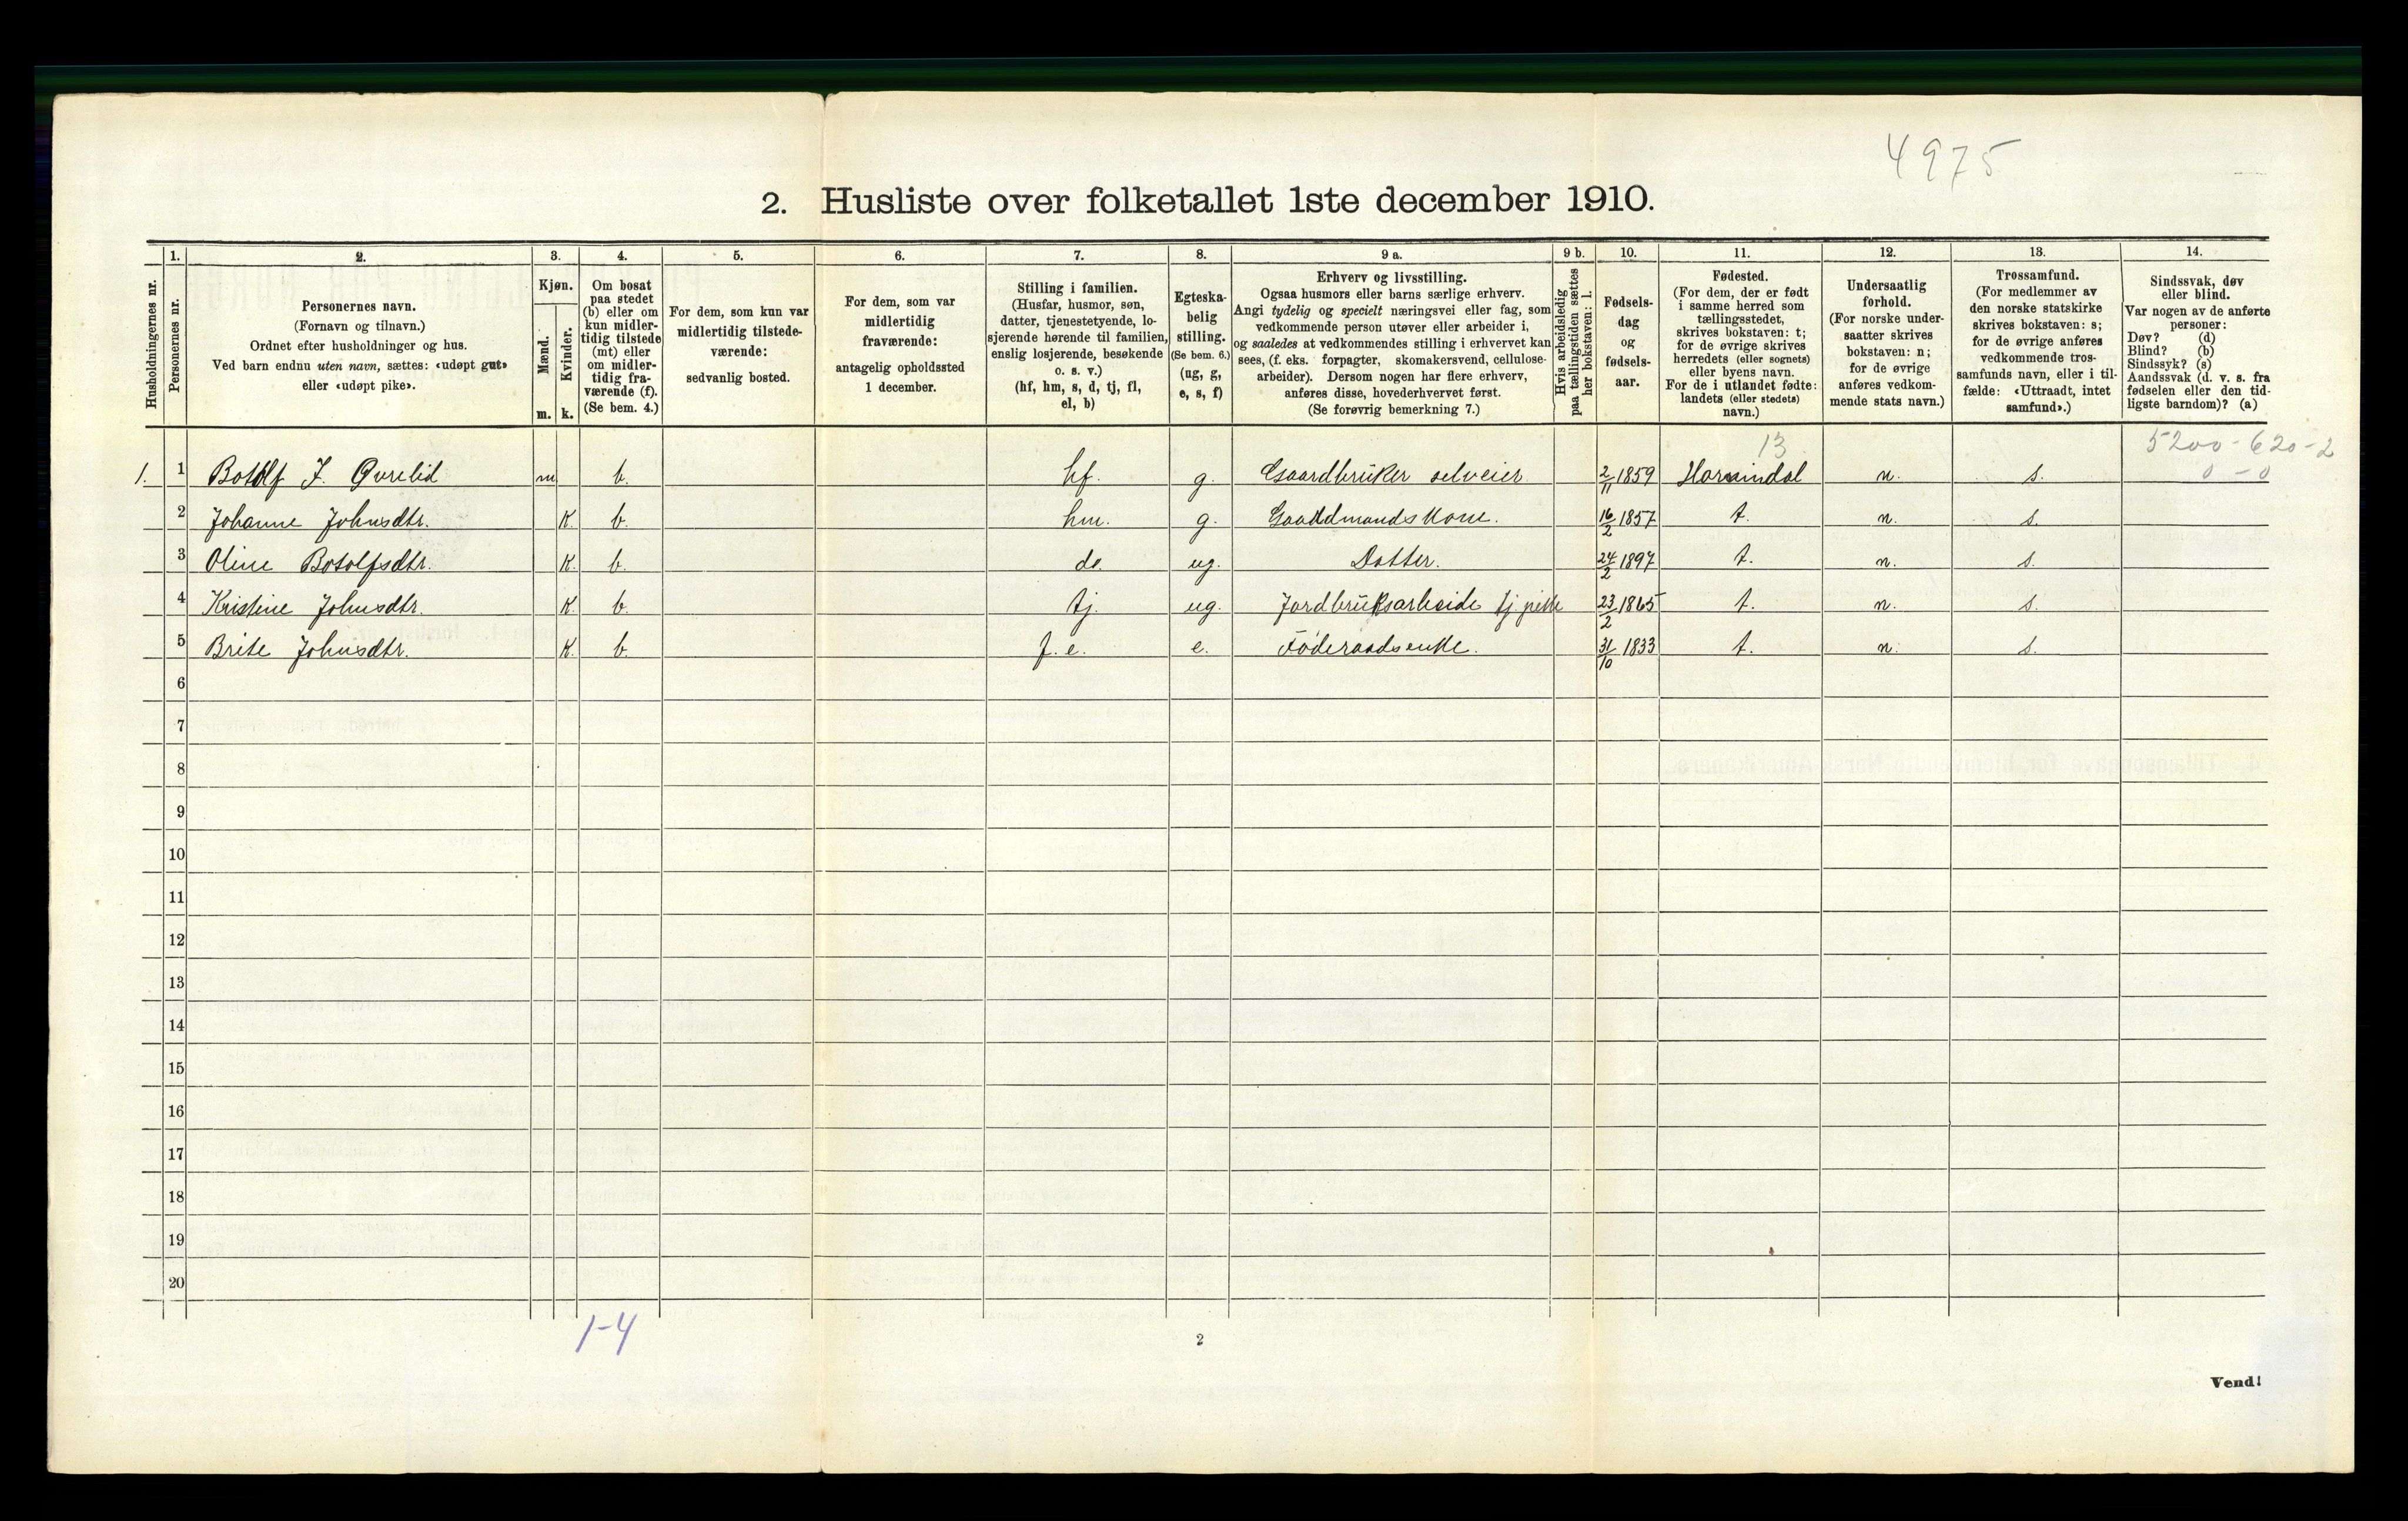 4975
2. Husliste over folketallet 1ste december 1910.
Husholdningernes nr.
1.
Personernes nr.
2.
Personernes navn.
(Fornavn og tilnavn.)
Ordnet efter husholdninger og hus.
Ved barn endnu uten navn, sættes: «udøpt gut»
eller «udøpt pike».
3.
Kjøn.
Mænd.
m.
Kvinder.
k.
4.
Om bosat
paa stedet
(b) eller om
kun midler-
tidig tilstede
(mt) eller
om midler-
tidig fra-
værende (f).
(Se bem. 4.)
5.
For dem, som kun var
midlertidig tilstede-
værende:
sedvanlig bosted.
6.
For dem, som var
midlertidig
fraværende:
antagelig opholdssted
1 december.
7.
Stilling i familien.
(Husfar, husmor, søn,
datter, tjenestetyende, lo-
sjerende hørende til familien,
enslig losjerende, besøkende
o. s. v.)
(hf, hm, s, d, tj, fl,
el, b)
8.
Egteska-
belig
stilling.
(Se bem. 6.)
(ug, g,
e, s, f)
9 a.
Erhverv og livsstilling.
Ogsaa husmors eller barns særlige erhverv.
Angi tydelig og specielt næringsvei eller fag, som
vedkommende person utøver eller arbeider i,
og saaledes at vedkommendes stilling i erhvervet kan
sees, (f. eks. forpagter, skomakersvend, cellulose-
arbeider). Dersom nogen har flere erhverv,
anføres disse, hovederhvervet først.
(Se forøvrig bemerkning 7.)
9 b.
Hvis arbeidsledig
paa tællingstiden sættes
her bokstaven: l.
10.
Fødsels-
dag
og
fødsels-
aar.
11.
Fødested.
(For dem, der er født
i samme herred som
tællingsstedet,
skrives bokstaven: t;
for de øvrige skrives
herredets (eller sognets)
eller byens navn.
For de i utlandet fødte:
landets (eller stedets)
navn.)
12.
Undersaatlig
forhold.
(For norske under-
saatter skrives
bokstaven: n;
for de øvrige
anføres vedkom-
mende stats navn.)
13.
Trossamfund.
(For medlemmer av
den norske statskirke
skrives bokstaven: s;
for de øvrige anføres
vedkommende tros-
samfunds navn, eller i til-
fælde: «Uttraadt, intet
samfund».)
14.
Sindssvak, døv
eller blind.
Var nogen av de anførte
personer:
Døv? (d)
Blind? (b)
Sindssyk? (s)
Aandssvak (d. v. s. fra
fødselen eller den tid-
ligste barndom)? (a)
13
5200-620-2
0-0
1. 1 Botolf J. Øvrelid m b. hf. g. Gaardbruker selveier 2/11 1859 Hornindal n. s.
2 Johanne Johnsdtr. K. b. hm. g. Gaardmandskone. 16/2 1857 t. n. s.
3 Oline Botolfsdtr. K. b. do. ug. Datter. 24/2 1897 t. n. s.
4 Kristine Johnsdtr. K. b. tj. ug. Jordbruksarbeide tj. pike 23/2 1865 t. n. s.
5 Brite Johnsdtr. K. b. f. e. e. Føderaadsenke. 31/10 1833 t. n. s.
6
7
8
9
10
11
12
13
14
15
16
17
18
19
20
1-4
2
Vend!